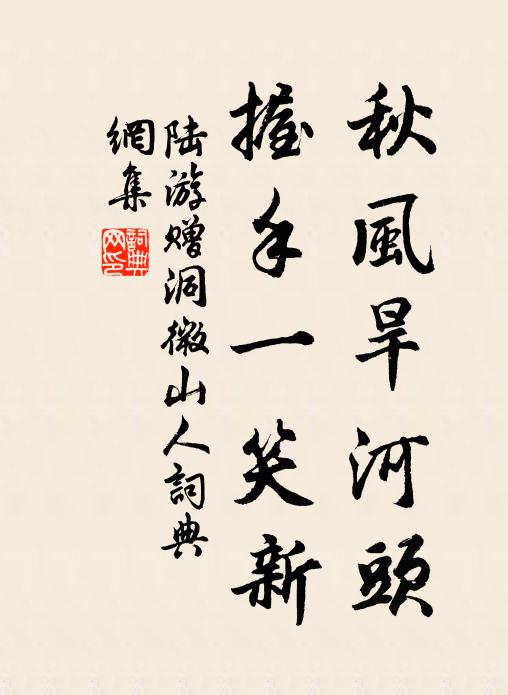 秋風旱河頭
握手一笑新
陆游赠洞微山人詞典
網集
詞典
网印